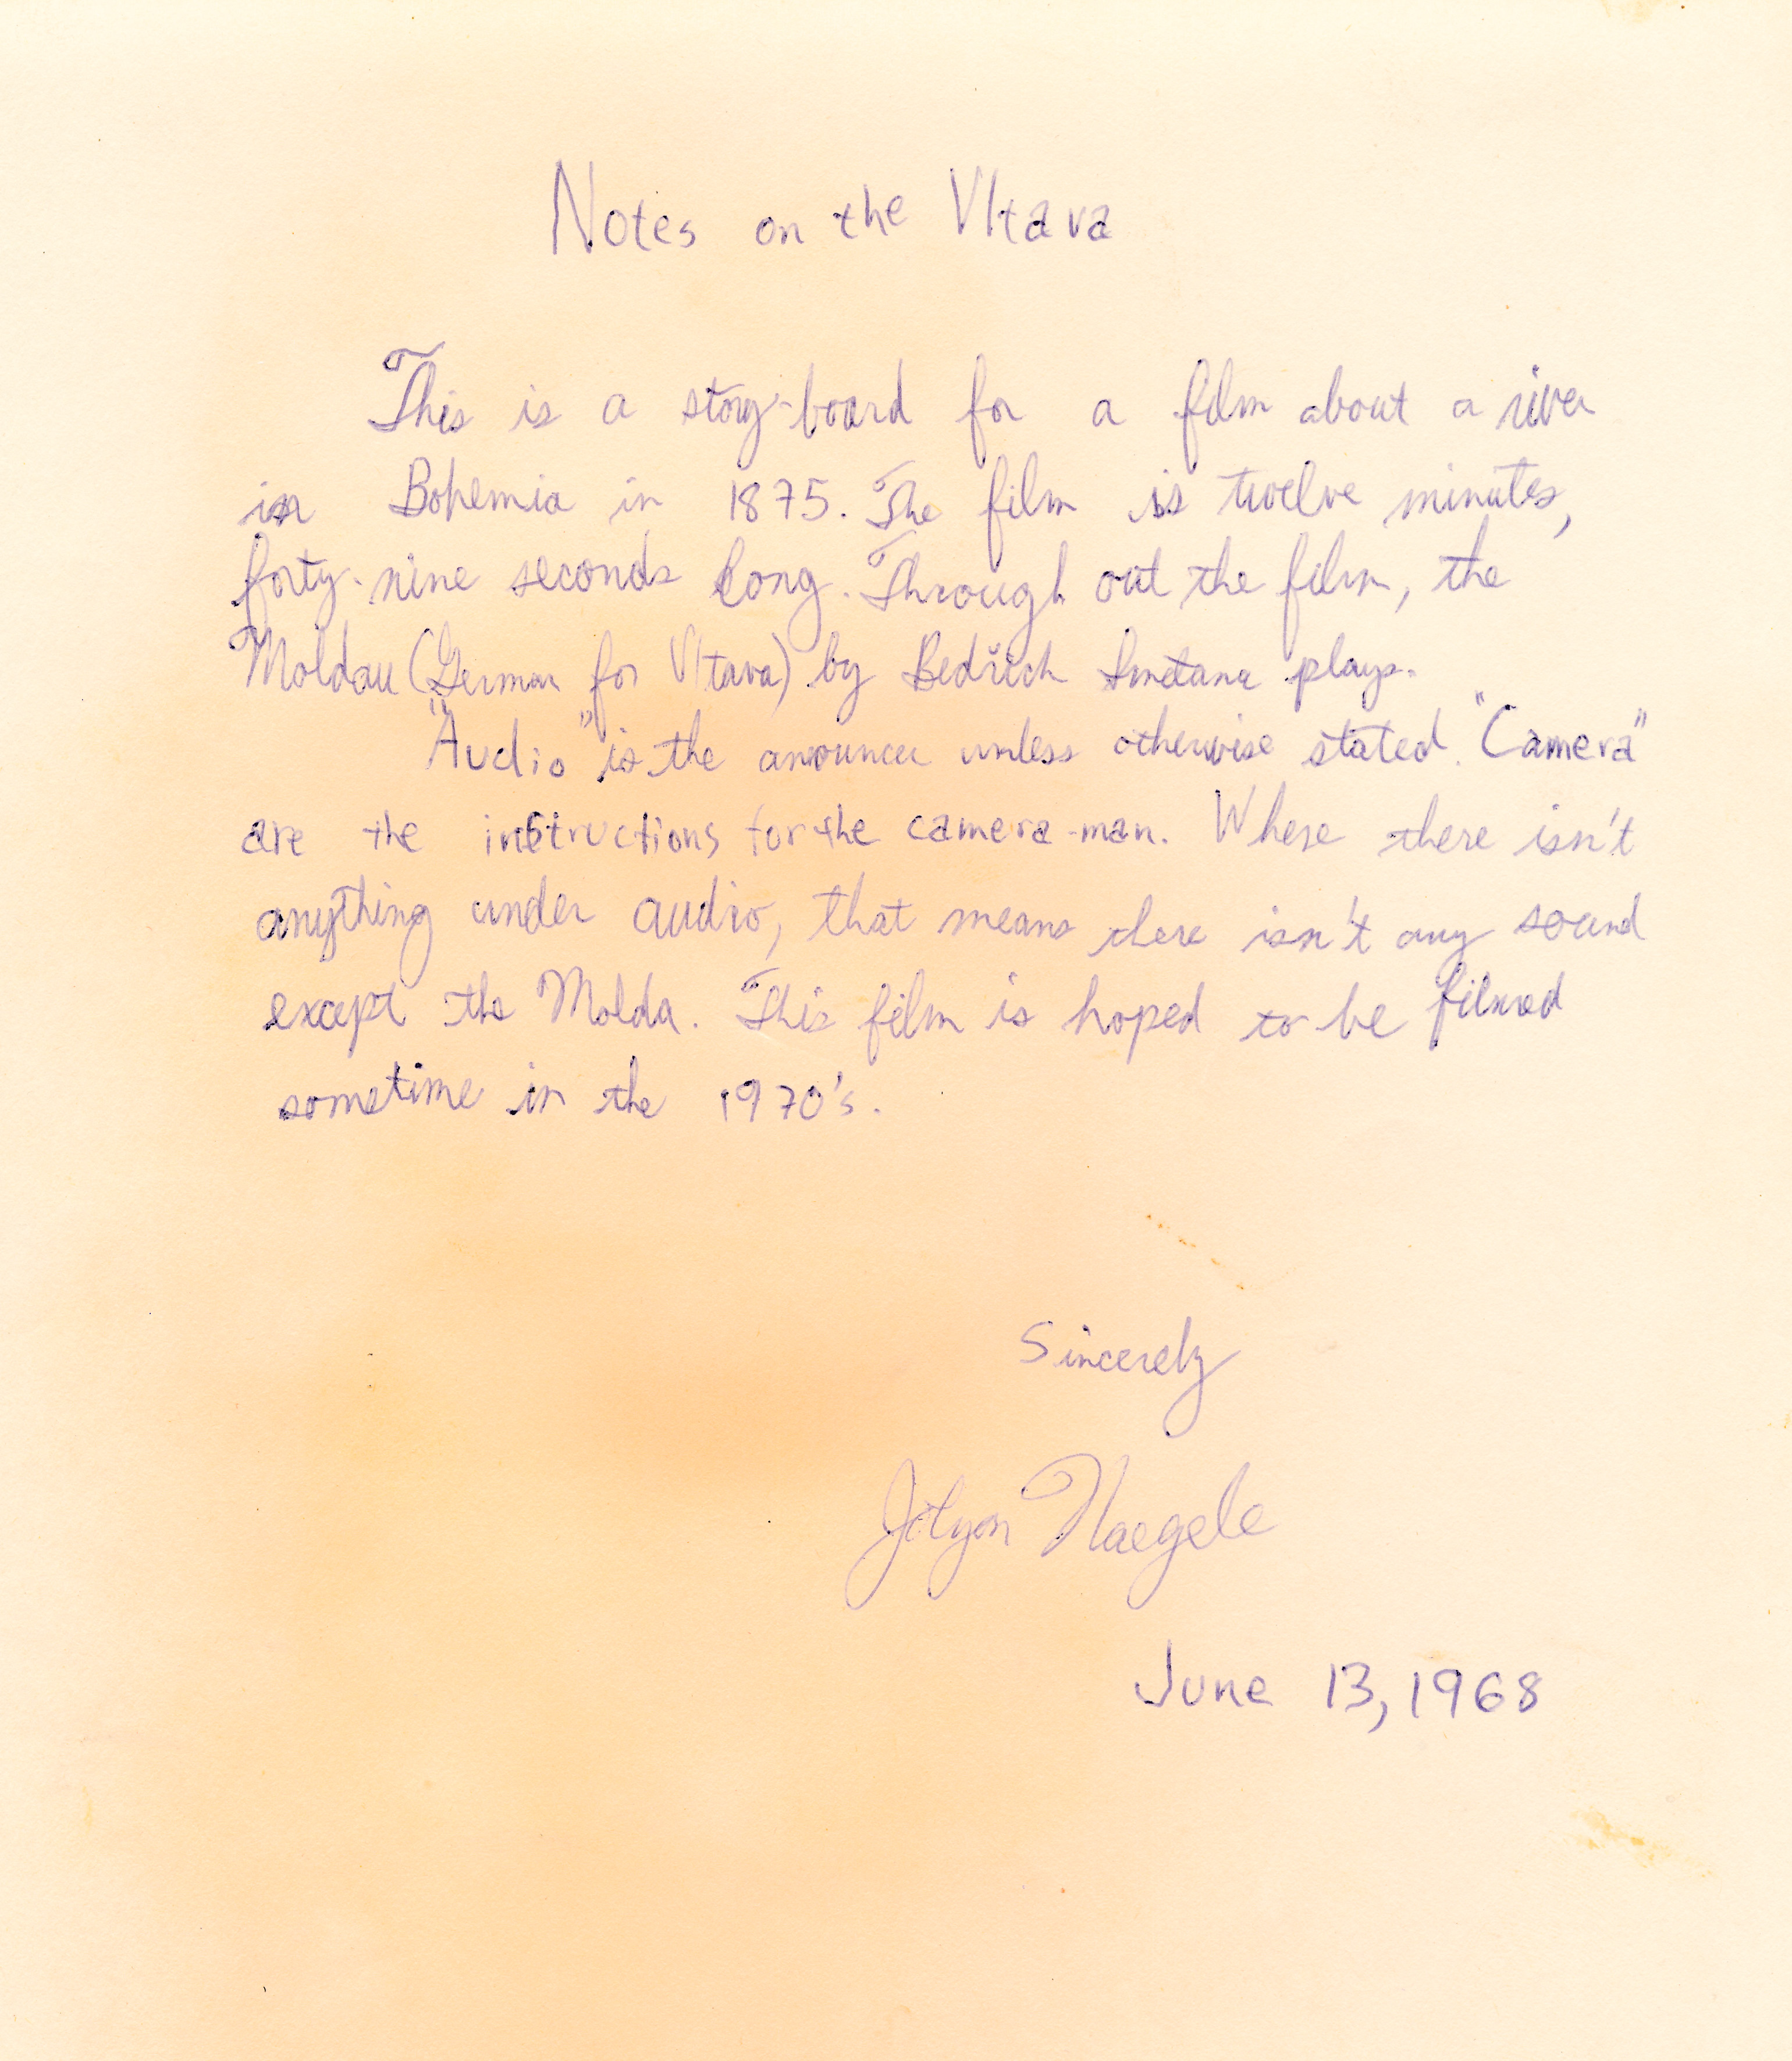 Notes on the Vltava
This is a story-board for a film about a river
in Bohemia in 1875. The film is twelve minutes,
forty-nine seconds long. Through out the film, the
Moldau (German for Vltava) by Bedřich Smetana plays.
"Audio" is the announcer unless otherwise stated. "Camera"
are the instructions for the camera-man. Where there isn't
anything under audio, that means there isn't any sound
except the Molda. This film is hoped to be filmed
sometime in the 1970's.
Sincerely
Jolyon Naegele
June 13, 1968